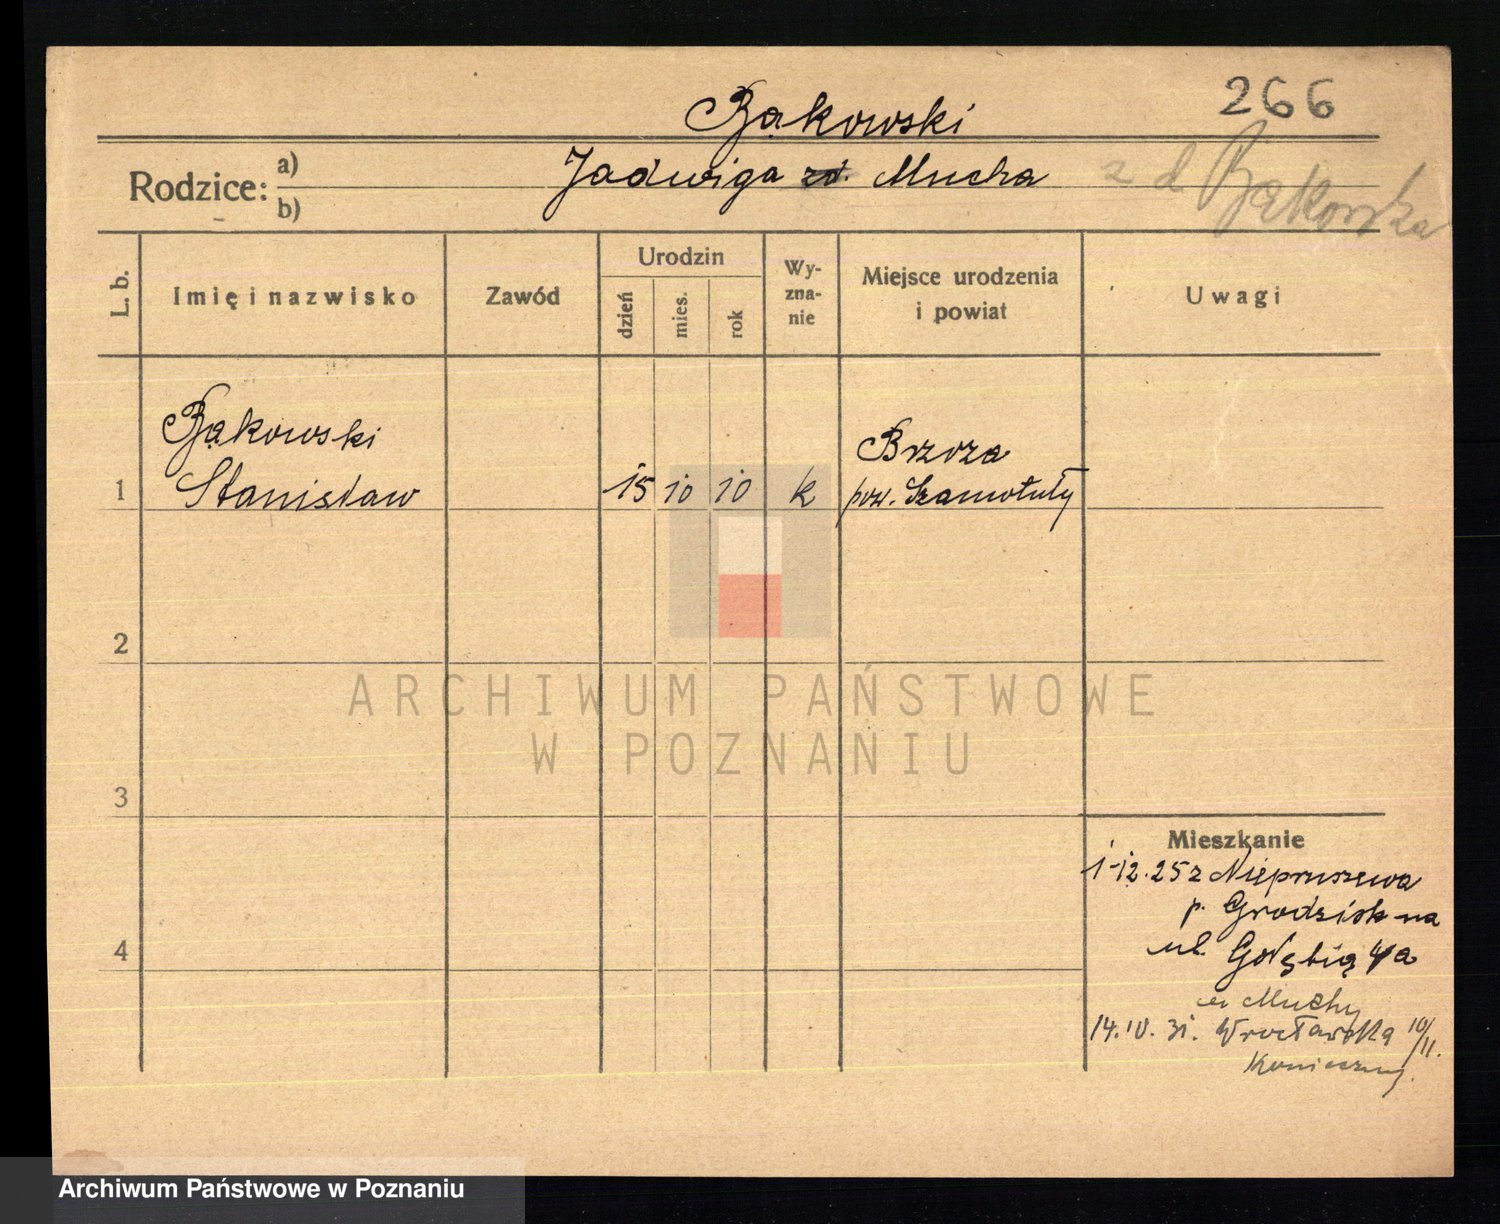 266
Bąkowski
Rodzice: a)
b)
Jadwiga zd. Mucha
z d Bąkowska
L. b.
Imię i nazwisko
Zawód
Urodzin
dzień
mies.
rok
Wy-
zna-
nie
Miejsce urodzenia
i powiat
Uwagi
Bąkowski
1 Stanisław 15 10 10 k
Brzoza
pow. Szamotuły
2
3
4
Mieszkanie
1-12.25 z Niepruszewa
p. Grodzisk na
ul. Gołębią 4/a
Muchy
14.IV.31. Wrocławska 10/11.
Konieczny.
ARCHIWUM PAŃSTWOWE
W POZNANIU
Archiwum Państwowe w Poznaniu